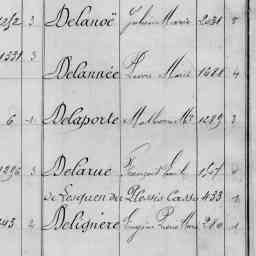 3 Delanoë Marie 2031 8
1331 3
Delannée Pierre Marie 1688 4
6 1 Delaporte Mathurin Me 1289 3
1296 3 Delarue François 157
de Lesquen du Plessis Casso 433
243 2 Delignère Eugène Pierre Marie 280 1